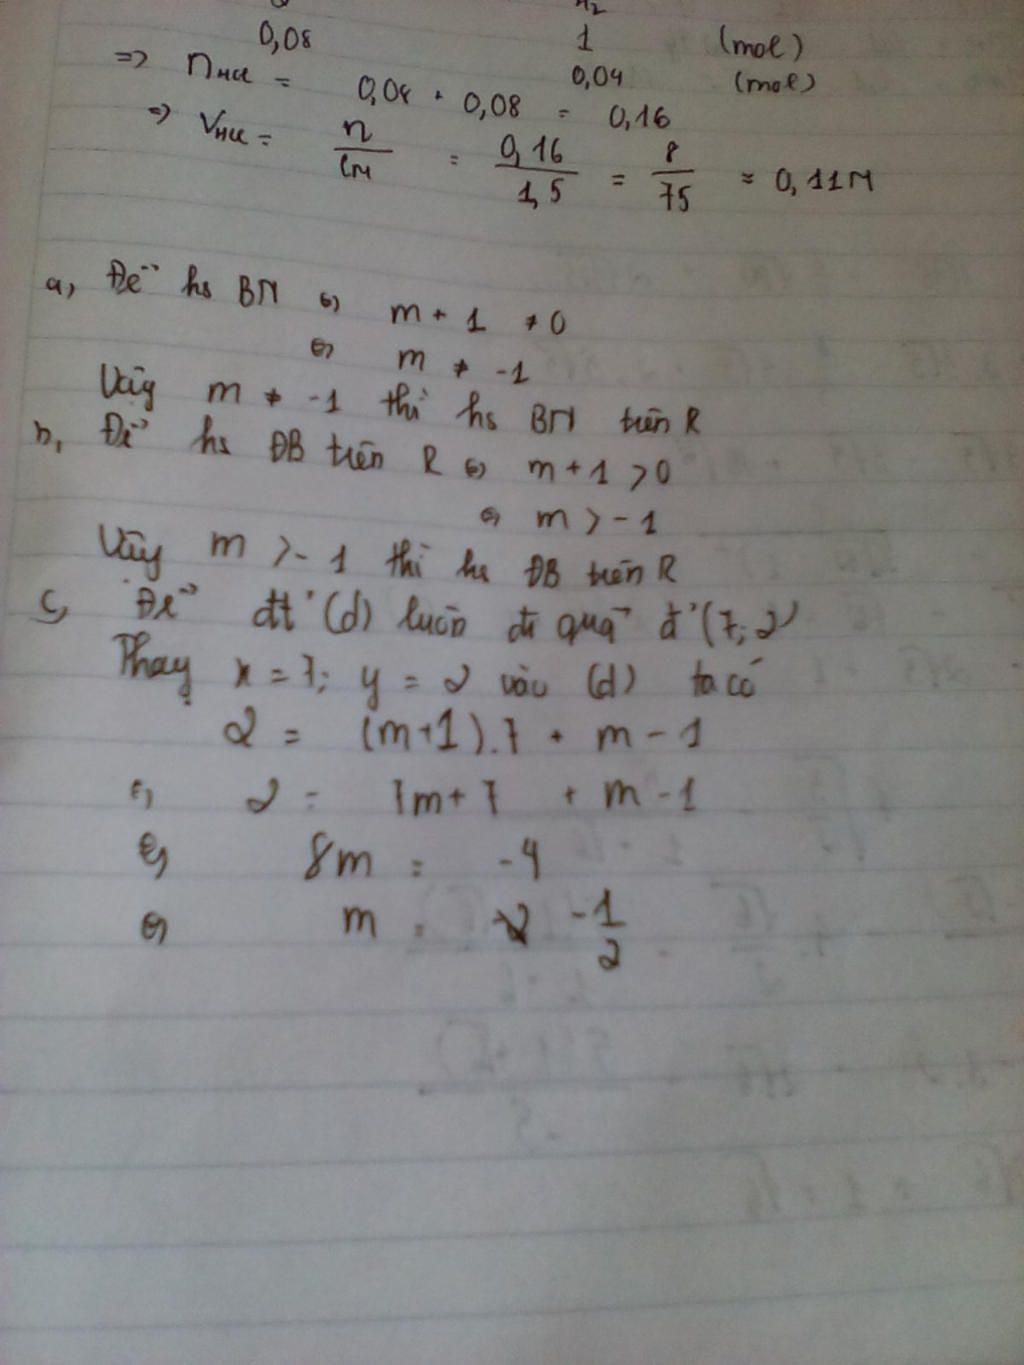 0,08 1 (mol)
=> nHCl = 0,04 (mol)
0,08 + 0,08 = 0,16
=> VHCl = n/CM = 0,16/1,5 = 8/75 ≈ 0,11M
a, Để hs BN <=> m + 1 ≠ 0
<=> m ≠ -1
Vậy m ≠ -1 thì hs BN trên R
b, Để hs ĐB trên R <=> m + 1 > 0
<=> m > -1
Vậy m > -1 thì hs ĐB trên R
c, Để đt' (d) luôn đi qua đ' (7; 2)
Thay x = 7; y = 2 vào (d) ta có
2 = (m+1).7 + m - 1
<=> 2 = 7m + 7 + m - 1
<=> 8m = -4
<=> m = -1/2